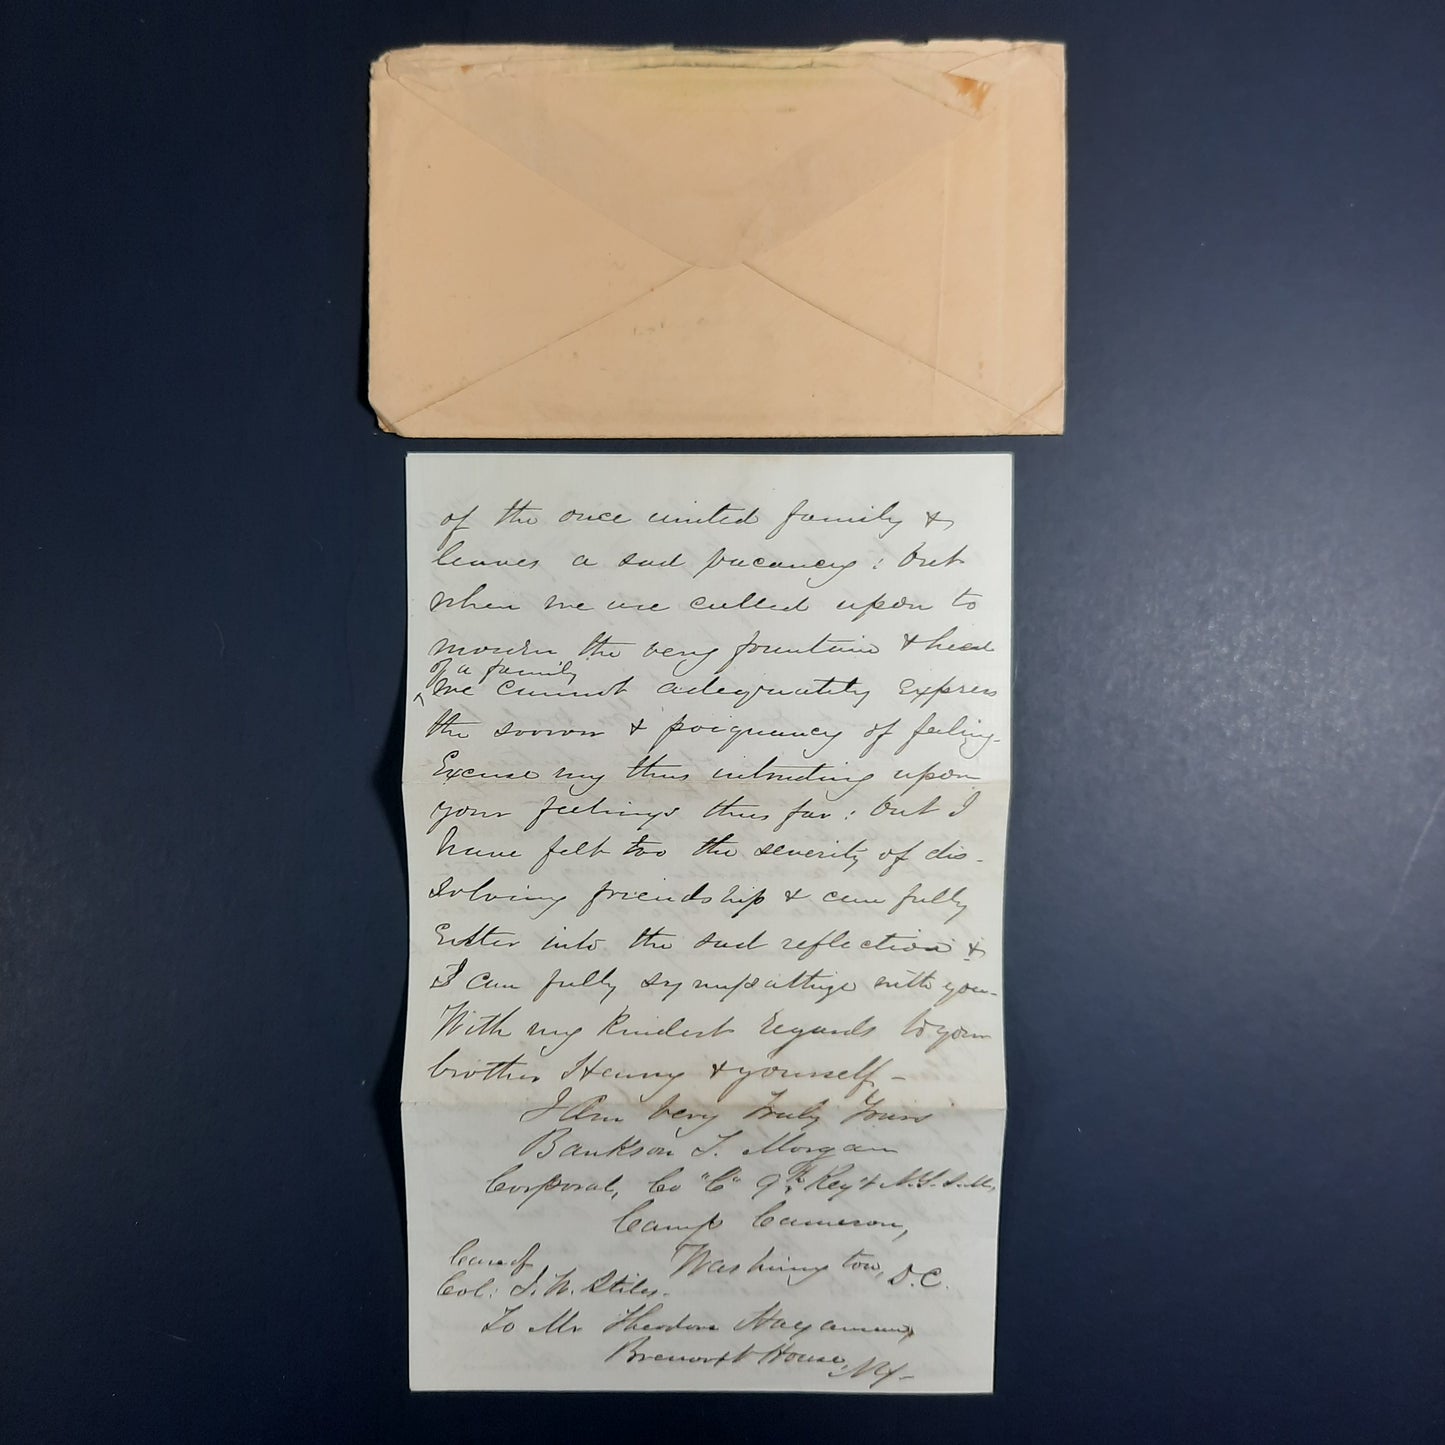 of the once united family &
leaves a sad vacancy; but
when we are called upon to
mourn the very fountain & head
of a family
^ we cannot adequately express
the sorrow & poignancy of feeling-
Excuse my thus intruding upon
your feelings thus far; but I
have felt too the severity of dis-
solving friendship & can fully
Enter into the sad reflection &
I can fully sympathize with you-
With my Kindest Regards to your
brother Henry & yourself-
I Am Very Truly Yours
Bankson T. Morgan
Corporal, Co "C" 9th Reg't N.Y.S.M.
Camp Cameron,
Washington, D.C.
Care of
Col: J. W. Stiles.
To Mr Theodore Hagaman,
House, NY-